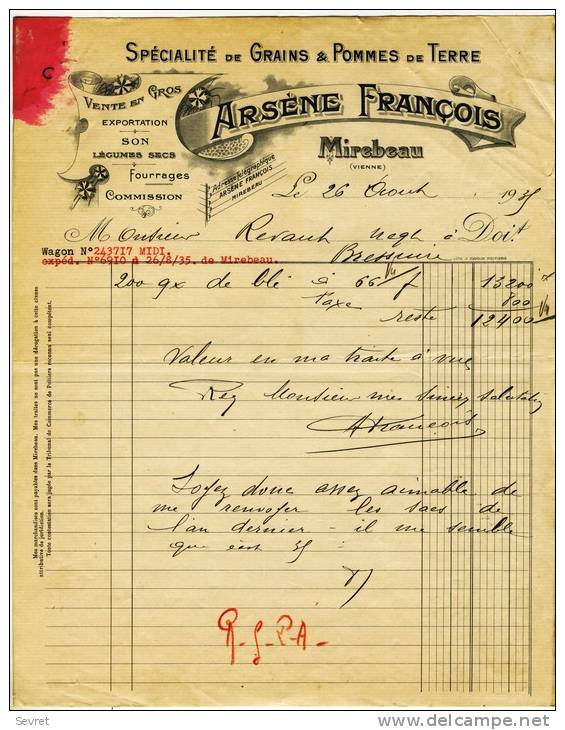 SPÉCIALITÉ DE GRAINS & POMMES DE TERRE
VENTE EN GROS
EXPORTATION
SON
LÉGUMES SECS
Fourrages
COMMISSION
ARSÈNE FRANÇOIS
Mirebeau
(VIENNE)
Adresse Télégraphique
ARSÈNE FRANÇOIS
MIREBEAU
Le 26 Août 1935
Monsieur Revault Negt à Doit
Bressuire
Wagon N°243717 MIDI.
expéd. N°6910 d 26/8/35. de Mirebeau.
200 qx de blé à 66 f 13200
Taxe 800
reste 12400
Valeur en ma traite à vue
Rec Monsieur mes sincères salutations
AFrançois
Soyez donc assez aimable de
me renvoyer les sacs de
l'an dernier - il me semble
que c'est 35
R-G-P-A-
Mes marchandises sont payables dans Mirebeau. Mes traites ne sont pas une dérogation à cette clause
attributive de juridiction.
Toute contestation sera jugée par le Tribunal de Commerce de Poitiers reconnu seul compétent.
Sevret
delcampe.net